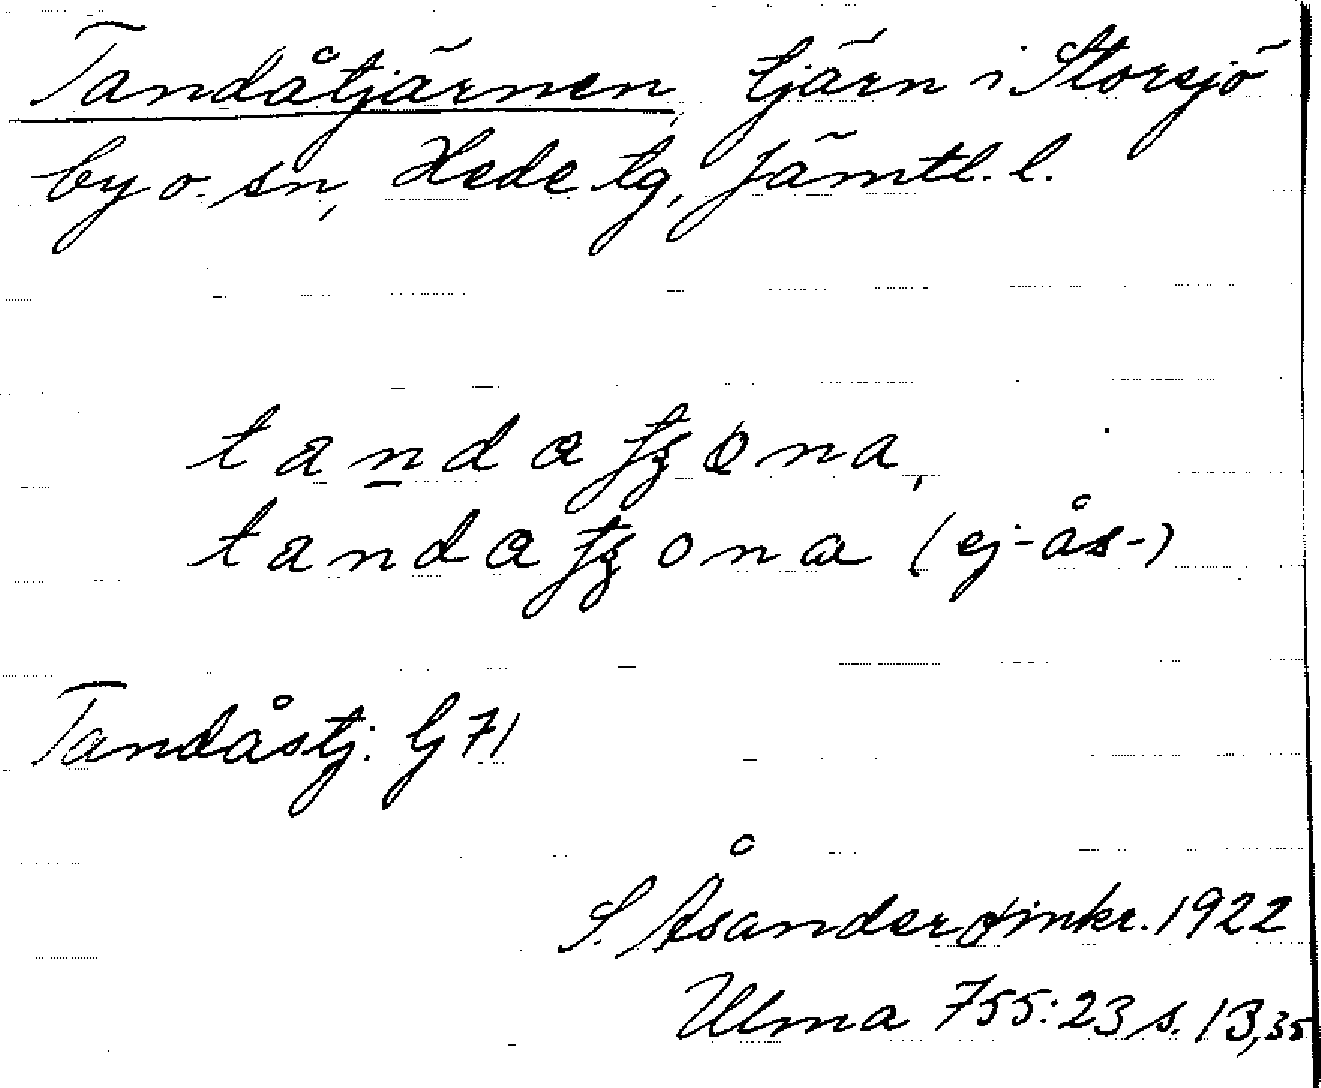 Tandåtjärnen, tjärn i Storsjö
by o. sn, Hede tg, Jämtl. l.
tandatʒøna,
tandatʒona (ej -ås-)
Tandåstj. G 71
S. Åsander inkr. 1922
Ulma 755:23 s. 13, 35